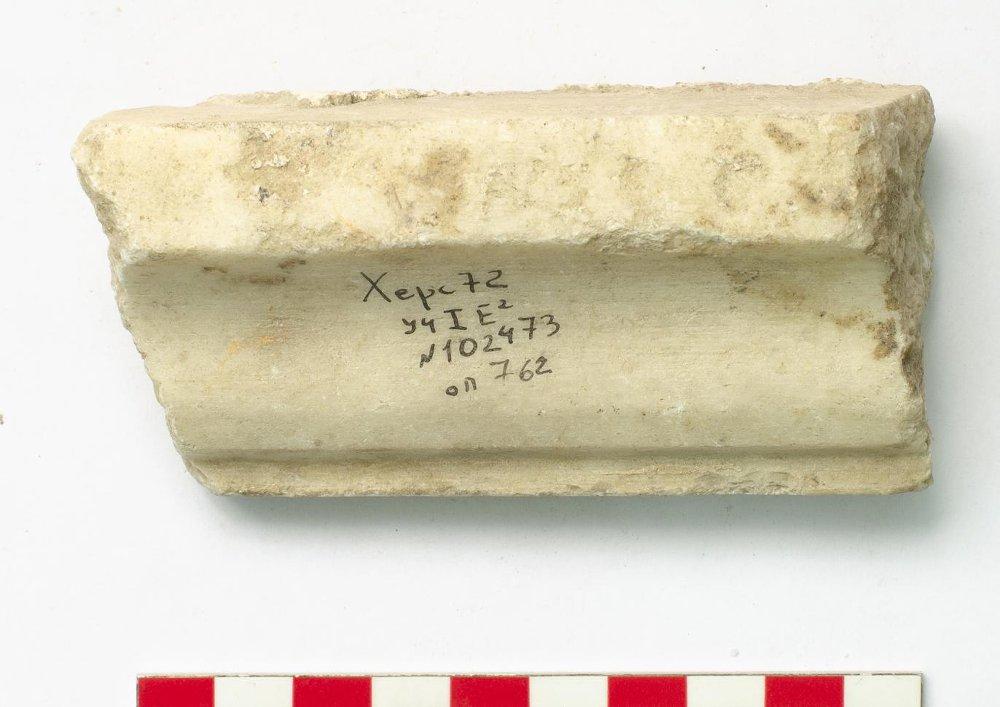 Херс 72
уч I E²
N102473
оп 762